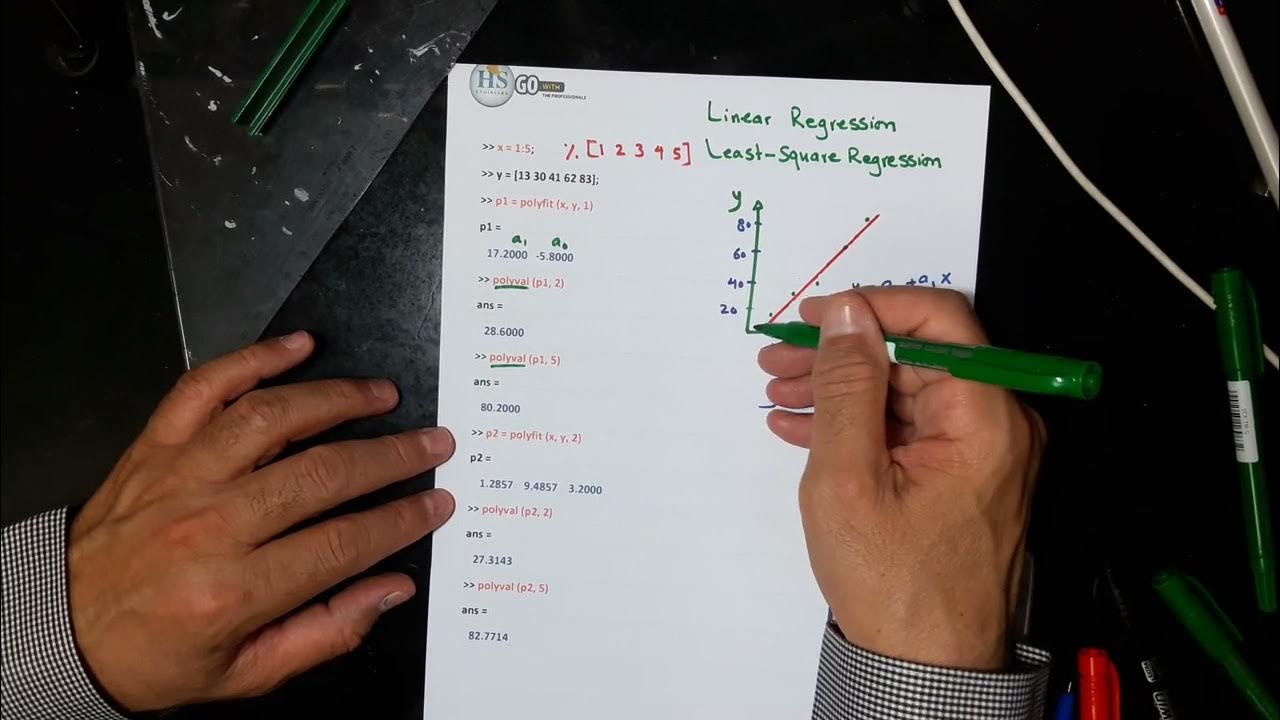 HS
ENGINEERS
GO WITH
THE PROFESSIONALS
Linear Regression
Least-Square Regression
>> x = 1:5; % [1 2 3 4 5]
>> y = [13 30 41 62 83];
>> p1 = polyfit (x, y, 1)
p1 =
a₁ a₀
17.2000 -5.8000
>> polyval (p1, 2)
ans =
28.6000
>> polyval (p1, 5)
ans =
80.2000
>> p2 = polyfit (x, y, 2)
p2 =
1.2857 9.4857 3.2000
>> polyval (p2, 2)
ans =
27.3143
>> polyval (p2, 5)
ans =
82.7714
y
80
60
40
20
+a₁x